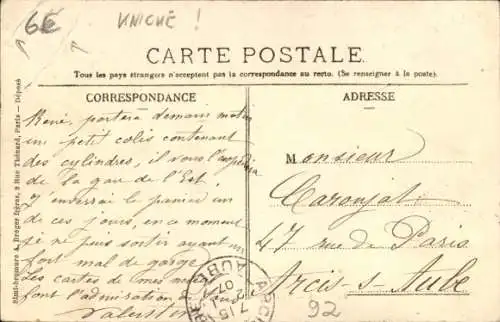 6€
UNICNÉ !
CARTE POSTALE.
Tous les pays étrangers n'acceptent pas la correspondance au recto. (Se renseigner à la poste).
CORRESPONDANCE
René, portera demain matin
un petit colis contenant
des cylindres, il vous l'expédiera
de la gare de l'Est.
J'enverrai le panier un
de ces jours, en ce moment
je ne puis sortir ayant
fort mal de gorge.
Les cartes de mes
font l'admiration de
Valentin
ADRESSE
Monsieur
Caronjat
47 rue de Paris
Arcis-s-Aube
92
ARCIS
AUBE
7 15
07
Simi-bromure A. Breger frères, 9 Rue Thénard, Paris — Déposé